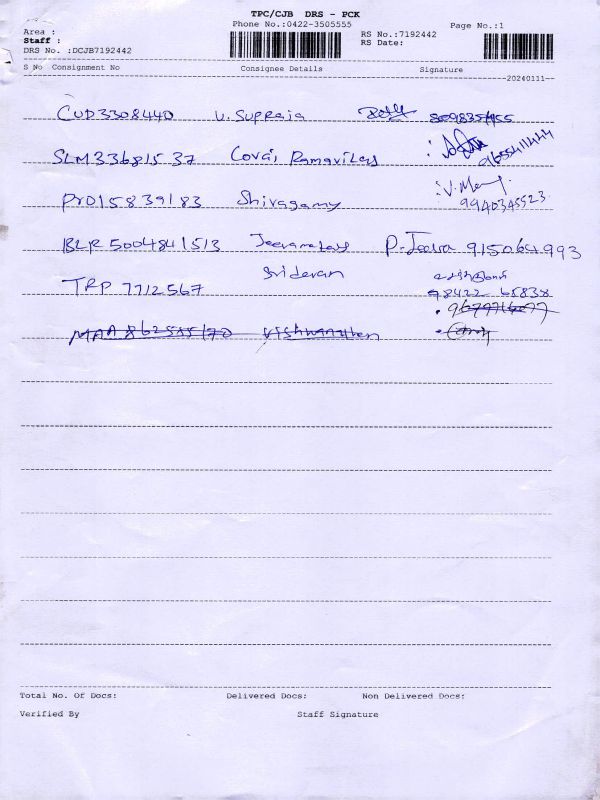 TPC/CJB DRS - PCK
Phone No.:0422-3505555
Page No.:1
Area :
Staff :
DRS No. :DCJB7192442
RS No.:7192442
RS Date:
S No Consignment No Consignee Details Signature
20240111
CUD3308440 U. Supraja
SLM33681537 Covai Ramavilas 9655411444
PYD15839183 Shivagamy V.
9940345523
BLR5004841513 P. Jeeva 915064993
TRP 7712567 Sridevan
98422 65838
MAA862585170 Vishwanathan
Total No. Of Docs: Delivered Docs: Non Delivered Docs:
Verified By Staff Signature